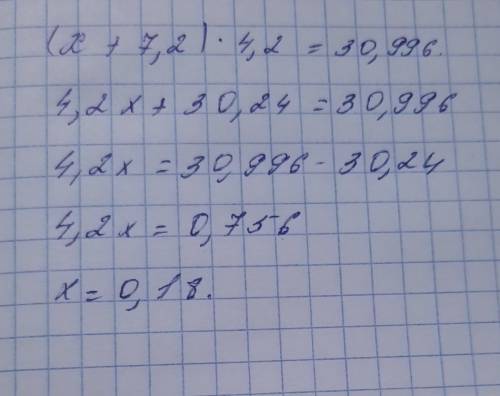 (x + 7,2) · 4,2 = 30,996.
4,2x + 30,24 = 30,996
4,2x = 30,996 - 30,24
4,2x = 0,756
x = 0,18.